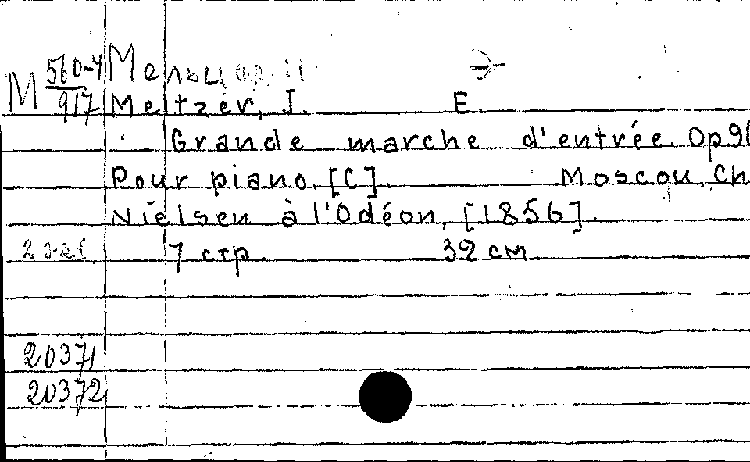 М 560-4/917 Мельцер, И.
Meltzer, J. E.
Grande marche d'entrée. Op 9
Pour piano. [C]. Moscou, Ch
Nielsen à l'Odéon, [1856].
2 экз 7 стр. 32 см.
20371
20372